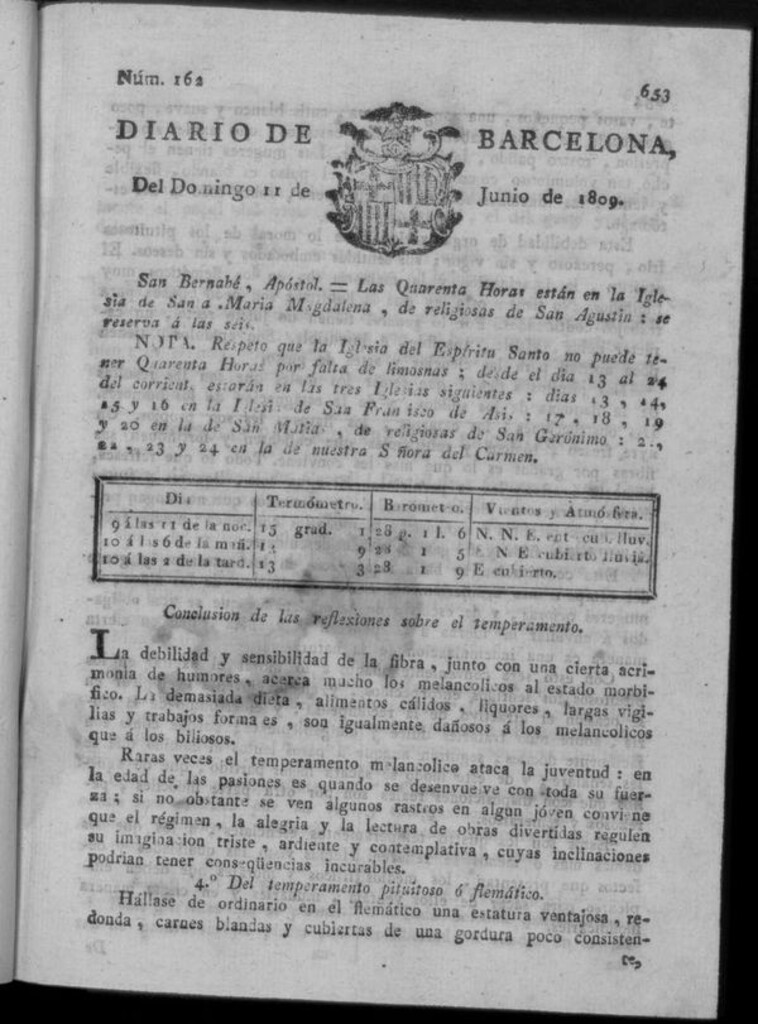 Núm. 162
653
DIARIO DE BARCELONA,
Del Domingo 11 de Junio de 1809.
San Bernabé, Apóstol. = Las Quarenta Horas están en la Igle-
sia de Santa Maria Magdalena, de religiosas de San Agustin: se
reserva á las seis.
NOTA. Respeto que la Iglesia del Espíritu Santo no puede te-
ner Quarenta Horas por falta de limosnas; desde el dia 13 al 24
del corriente estarán en las tres Iglesias siguientes: dias 13, 14,
15 y 16 en la Iglesia de San Francisco de Asis: 17, 18, 19
y 20 en la de San Matias, de religiosas de San Gerónimo: 21,
22, 23 y 24 en la de nuestra Señora del Carmen.
Dia Termómetro. Barómetro. Vientos y Atmósfera.
9 á las 11 de la noc. 15 grad. 1 28 p. 1 l. 6 N. N. E. ent. cub. lluv.
10 á las 6 de la mañ. 9 28 1 5 N E cubierto lluvia.
10 á las 2 de la tard. 13 3 28 1 9 E cubierto.
Conclusion de las reflexiones sobre el temperamento.
La debilidad y sensibilidad de la fibra, junto con una cierta acri-
monia de humores, acerca mucho los melancolicos al estado morbi-
fico. La demasiada dieta, alimentos cálidos, liquores, largas vigi-
lias y trabajos forma es, son igualmente dañosos á los melancolicos
que á los biliosos.
Raras veces el temperamento melancolico ataca la juventud: en
la edad de las pasiones es quando se desenvuelve con toda su fuer-
za; si no obstante se ven algunos rastros en algun jóven conviene
que el régimen, la alegria y la lectura de obras divertidas regulen
su imaginacion triste, ardiente y contemplativa, cuyas inclinaciones
podrian tener conseqüencias incurables.
4.º Del temperamento pituitoso ó flemático.
Hállase de ordinario en el flemático una estatura ventajosa, re-
donda, carnes blandas y cubiertas de una gordura poco consisten-
te,